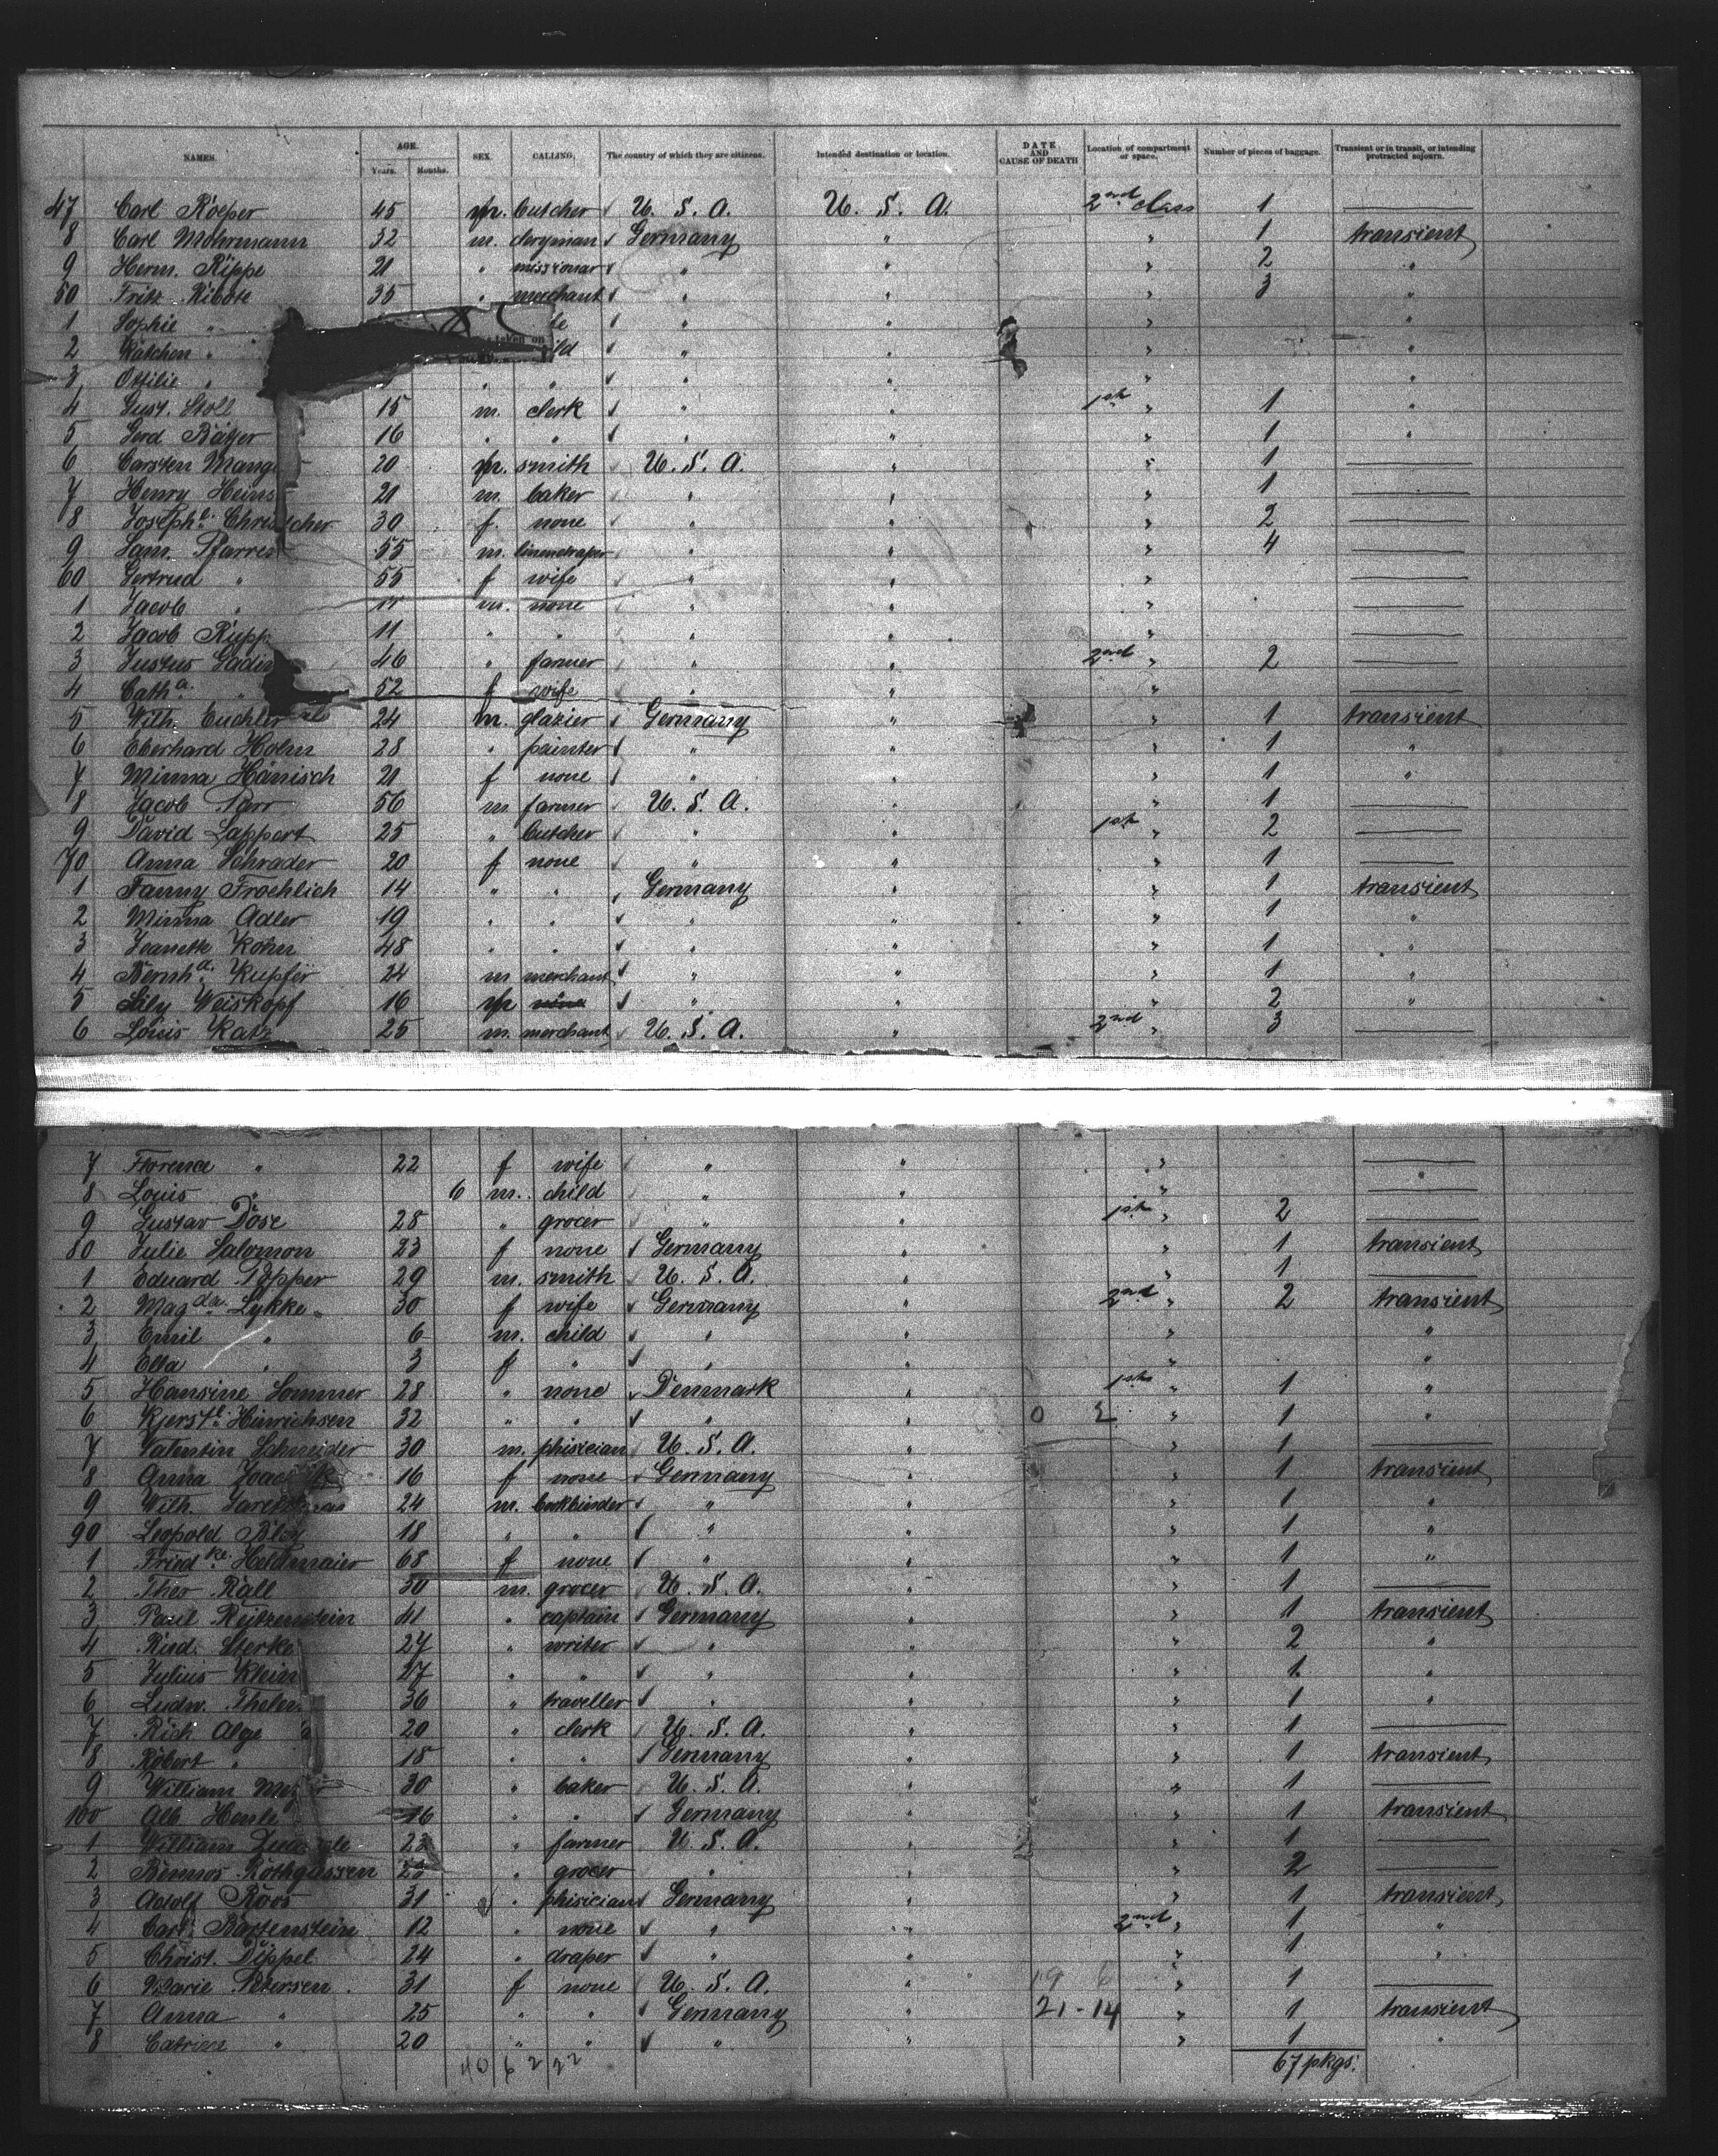 NAMES. AGE. Years. Months. SEX. CALLING. The country of which they are citizens. Intended destination or location. DATE AND CAUSE OF DEATH Location of compartment or space. Number of pieces of baggage. Transient or in transit, or intending protracted sojourn.
47 Carl Röeper 45 m. butcher U. S. A. U. S. A. 2nd class 1 —
8 Carl Mohrmann 32 m. clergman Germany " " 1 transient
9 Herm. Rippe 21 " missionar " " " 2 "
50 Fritz Ribote 35 " merchant " " " 3 "
1 Sophie " " " " "
2 Kätchen " taken on ld " " " "
3 Ottilie " " " " " " "
4 Gust. Stoll 15 m. clerk " " 1st " 1 "
5 Gerd Bätjer 16 " " " " " 1 "
6 Carsten Mang 20 m. smith U. S. A. " " 1 —
7 Henry Heins 21 m. baker " " " 1 —
8 Joseph.e Chris cher 30 f. none " " " 2 —
9 Sam. Pfarres 55 m. linendraper " " " 4 —
60 Gertrud " 55 f wife " " " —
1 Jacob " m. none " " " —
2 Jacob Rupp 11 " " " " " —
3 Justus Gadin 46 " farmer " " 2nd " 2 —
4 Cath.a " 52 f wife " " " —
5 Wilh. Euchler 24 m. glazier Germany " " 1 transient
6 Eberhard Holm 28 " painter " " " 1 "
7 Minna Hänisch 21 f none " " " 1 "
8 Jacob Parr 56 m farmer U. S. A. " " 1 —
9 David Lappert 25 " butcher " " 1st " 2 —
70 Anna Schrader 20 f none " " " 1 —
1 Fanny Froehlich 14 " " Germany " " 1 transient
2 Minna Adler 19 " " " " " 1 "
3 Jeanette Kohn 48 " " " " " 1 "
4 Bernh.d Kupfer 24 m merchant " " " 1 "
5 Lily Weiskopf 16 none " " " 2 "
6 Louis Katz 25 m. merchant U. S. A. " 2nd " 3 —
7 Florence " 22 f wife " " " —
8 Louis " 6 m. child " " " —
9 Gustav Döse 28 " grocer " " 1st " 2 —
80 Julie Salomon 23 f none Germany " " 1 transient
1 Eduard Popper 29 m. smith U. S. A. " " 1 —
2 Mag.da Lykke 30 f wife Germany " 2nd " 2 transient
3 Emil " 6 m. child " " " "
4 Ella " 3 f " " " " "
5 Hansine Sommer 28 " none Denmark " 1st " 1 "
6 Kjerst. Hinrichsen 32 " " " " " 1 "
7 Valentin Schneider 30 m. phisician U. S. A. " " 1 —
8 Anna 16 f none Germany " " 1 transient
9 Wilh. 24 m. bookbinder " " " 1 "
90 Leopold 18 " " " " " 1 "
1 Fried.ke Heldmaier 68 f none " " " 1 "
2 Theo Rall 30 m. grocer U. S. A. " " 1 —
3 Paul Reitzenstein 41 " captain Germany " " 1 transient
4 Rud. Sterke 27 " writer " " " 2 "
5 Julius Klein 27 " " " " " 1 "
6 Ludw. Thelen 36 " traveller " " " 1 "
7 Rich Alge 20 " clerk U. S. A. " " 1 —
8 Robert " 18 " " Germany " " 1 transient
9 William 30 " baker U. S. A. " " 1 —
100 Alb Henle 16 " " Germany " " 1 transient
1 William 23 " farmer U. S. A. " " 1 —
2 " grocer " " " 2 —
3 Adolf Roos 31 " phisician Germany " " 1 transient
4 Carl Bartenstein 12 " none " " 2nd " 1 "
5 Christ. Dippel 24 " draper " " " 1 "
6 Marie Petersen 31 f none U. S. A. " 19 6 " 1 —
7 Anna " 25 " " Germany " 21-14 " 1 transient
8 Catrine " 20 " " " " " 1 "
40 6 2 22 67 pkgs.